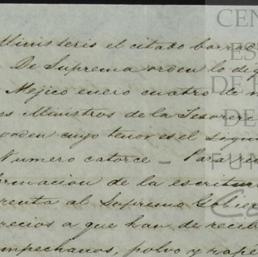 Ministerio el citado
De Suprema orden lo di
Mejico enero cuatro de
es Ministros de la Tesorer
orden cuyo tenor es el sigui
Numero catorce – Para
formacion de la escritu
renta al Supremo Gobier
recios a que han de recib
mpechanos, polvo y rape
CEN
ES
DE
DE